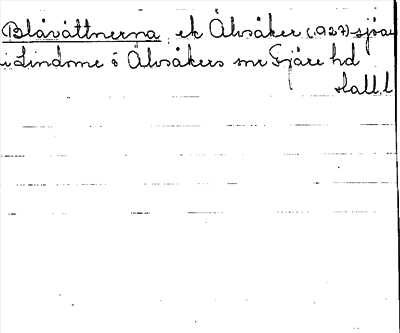 Blåvättnerna ek Älvsåker (.927) sjöar
i Lindome o Älvsåkers snr Fjäre hd
Hall.l